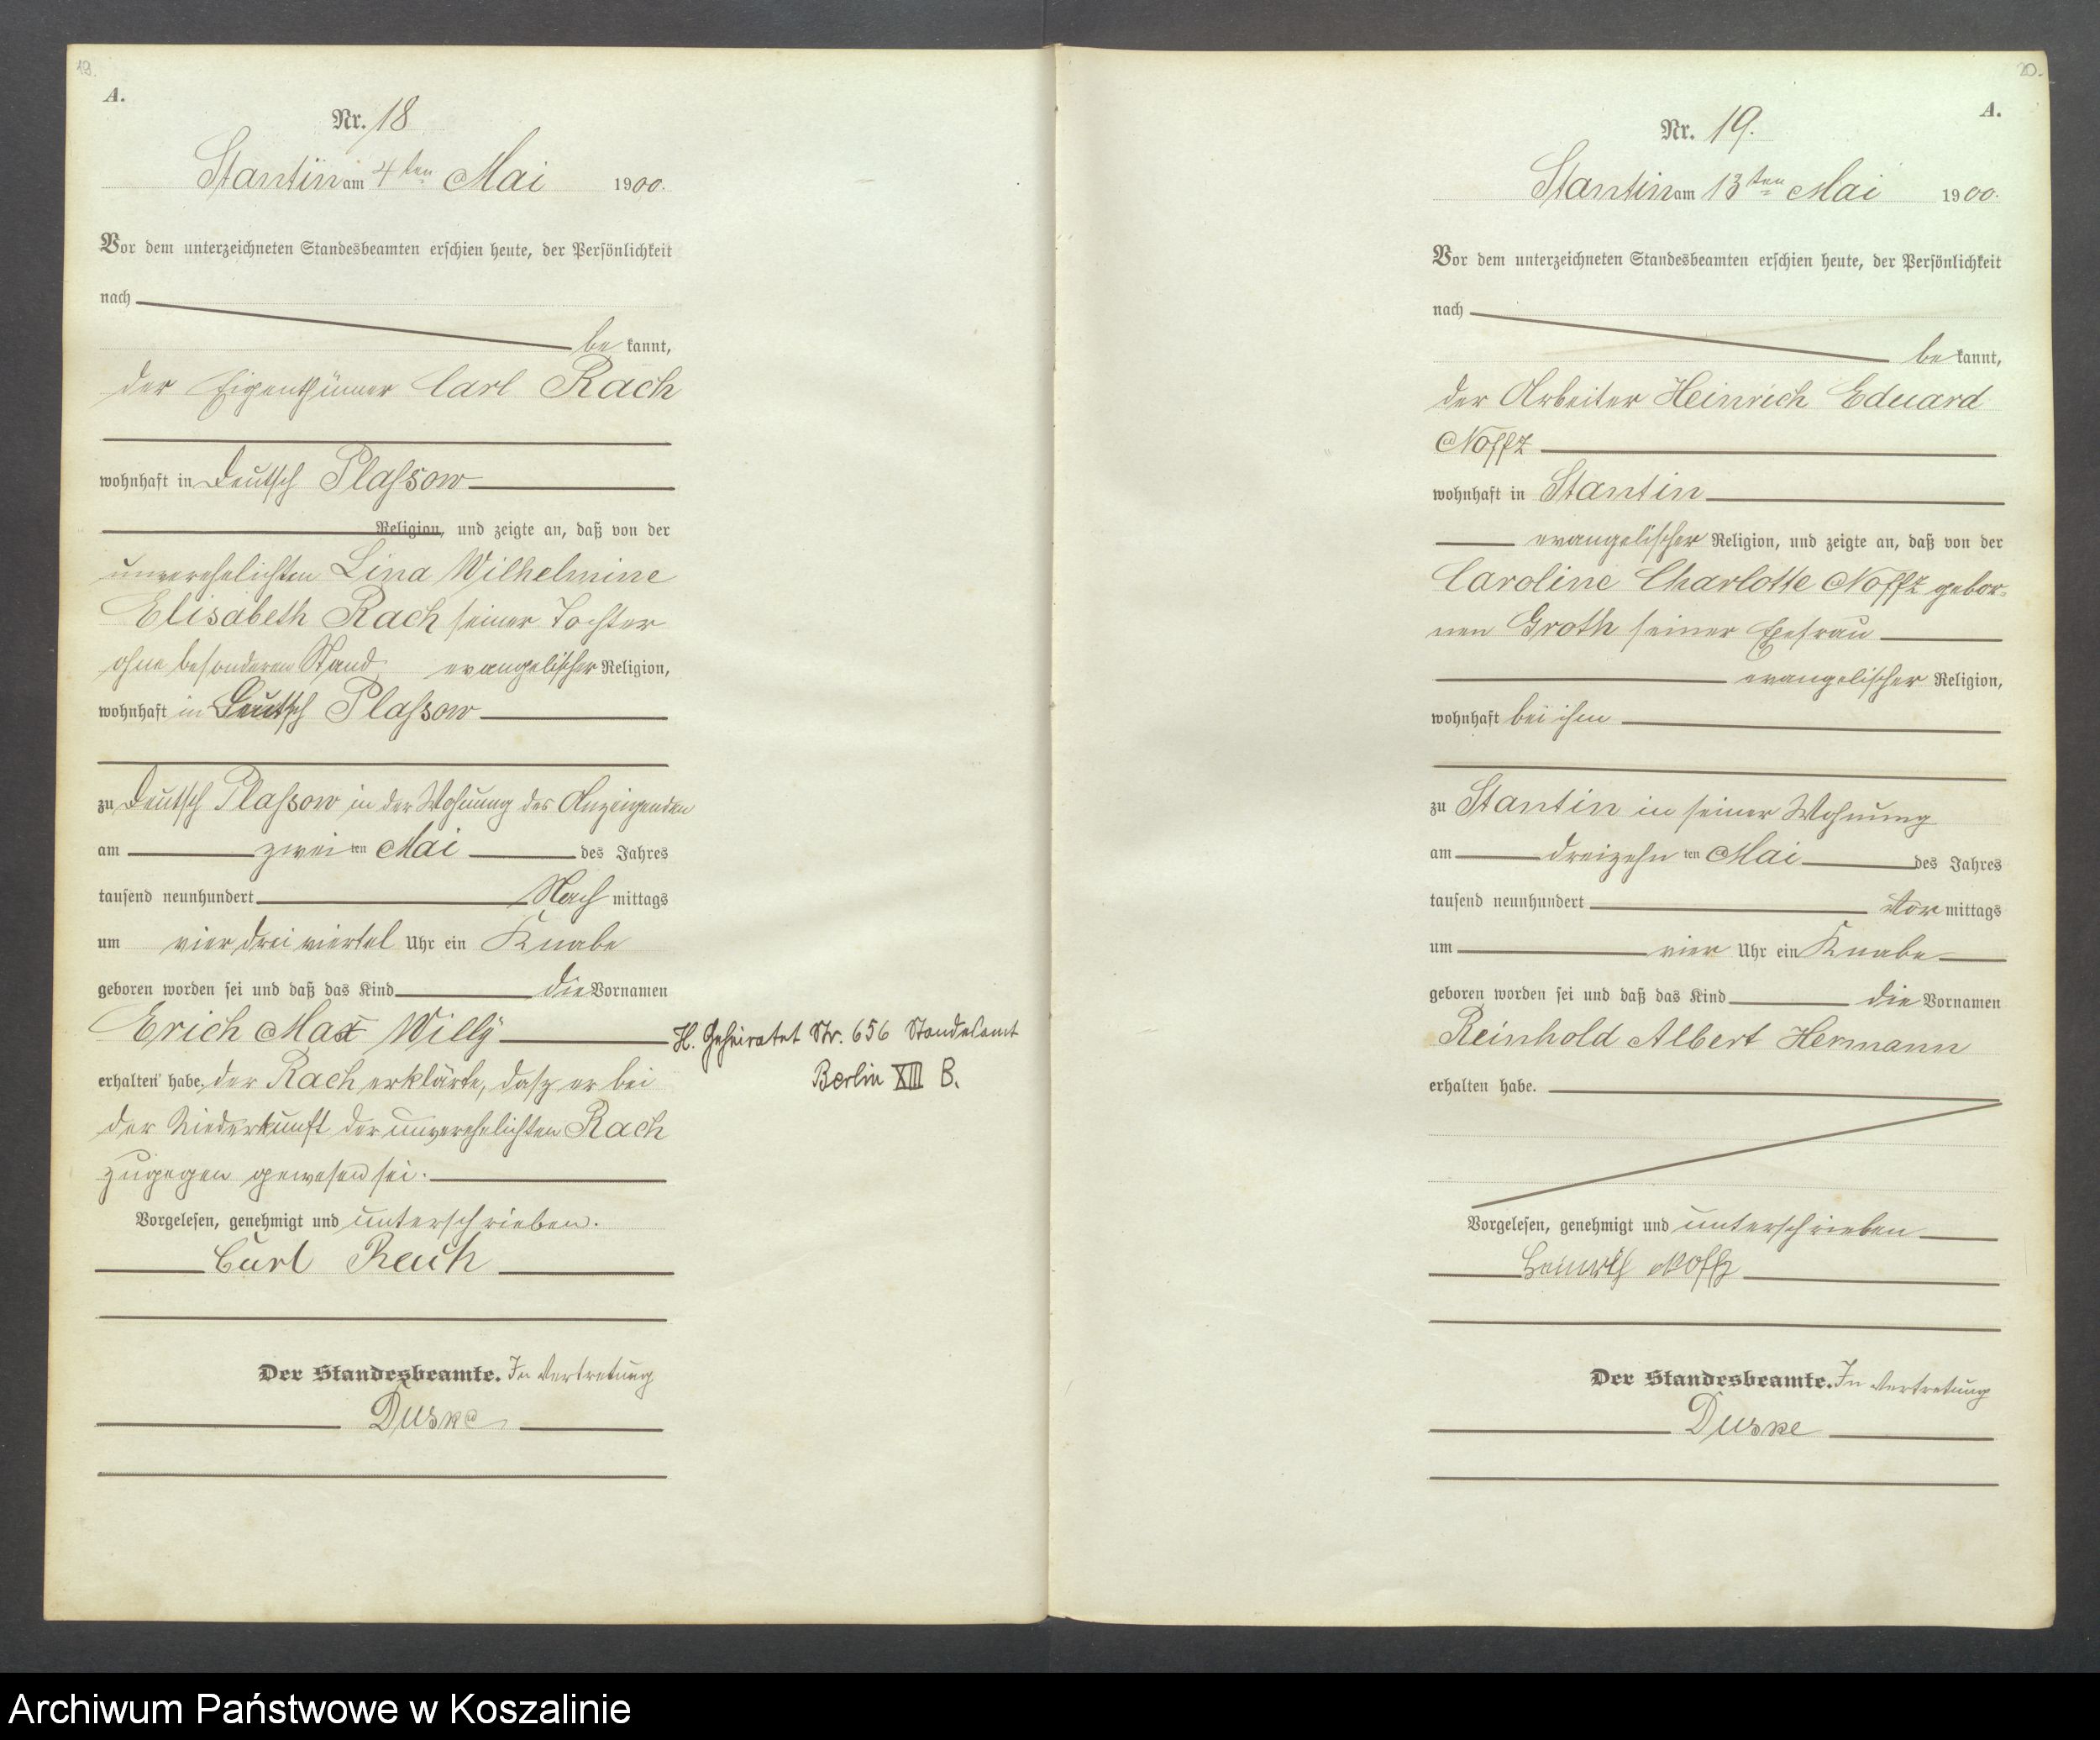 19.
A.
Nr. 18
Stantin am 4ten Mai 1900.
Vor dem unterzeichneten Standesbeamten erschien heute, der Persönlichkeit
nach
be kannt,
der Eigenthümer Carl Rach
wohnhaft in Deutsch Plassow
Religion, und zeigte an, daß von der
unverehelichten Lina Wilhelmine
Elisabeth Rach seiner Tochter
ohne besonderen Stand evangelischer Religion,
wohnhaft in Deutsch Plassow
zu Deutsch Plassow in der Wohnung des Anzeigenden
am zwei ten Mai des Jahres
tausend neunhundert Nach mittags
um vier drei viertel Uhr ein Knabe
geboren worden sei und daß das Kind die Vornamen
Erich Max Willy
erhalten habe. der Rach erklärte, dasz er bei
der Niederkunft der unverehelichten Rach
zugegen gewesen sei.
Vorgelesen, genehmigt und unterschrieben.
Carl Rach
Der Standesbeamte. In Vertretung
Duske
H. Geheiratet Nr. 656 Standesamt
Berlin XIII B.
20.
A.
Nr. 19.
Stantin am 13ten Mai 1900.
Vor dem unterzeichneten Standesbeamten erschien heute, der Persönlichkeit
nach
be kannt,
der Arbeiter Heinrich Eduard
Noffz
wohnhaft in Stantin
evangelischer Religion, und zeigte an, daß von der
Caroline Charlotte Noffz gebor-
nen Groth seiner Ehefrau
evangelischer Religion,
wohnhaft bei ihm
zu Stantin in seiner Wohnung
am dreizehn ten Mai des Jahres
tausend neunhundert Vor mittags
um vier Uhr ein Knabe
geboren worden sei und daß das Kind die Vornamen
Reinhold Albert Hermann
erhalten habe.
Vorgelesen, genehmigt und unterschrieben
Heinrich Noffz
Der Standesbeamte. In Vertretung
Duske
Archiwum Państwowe w Koszalinie